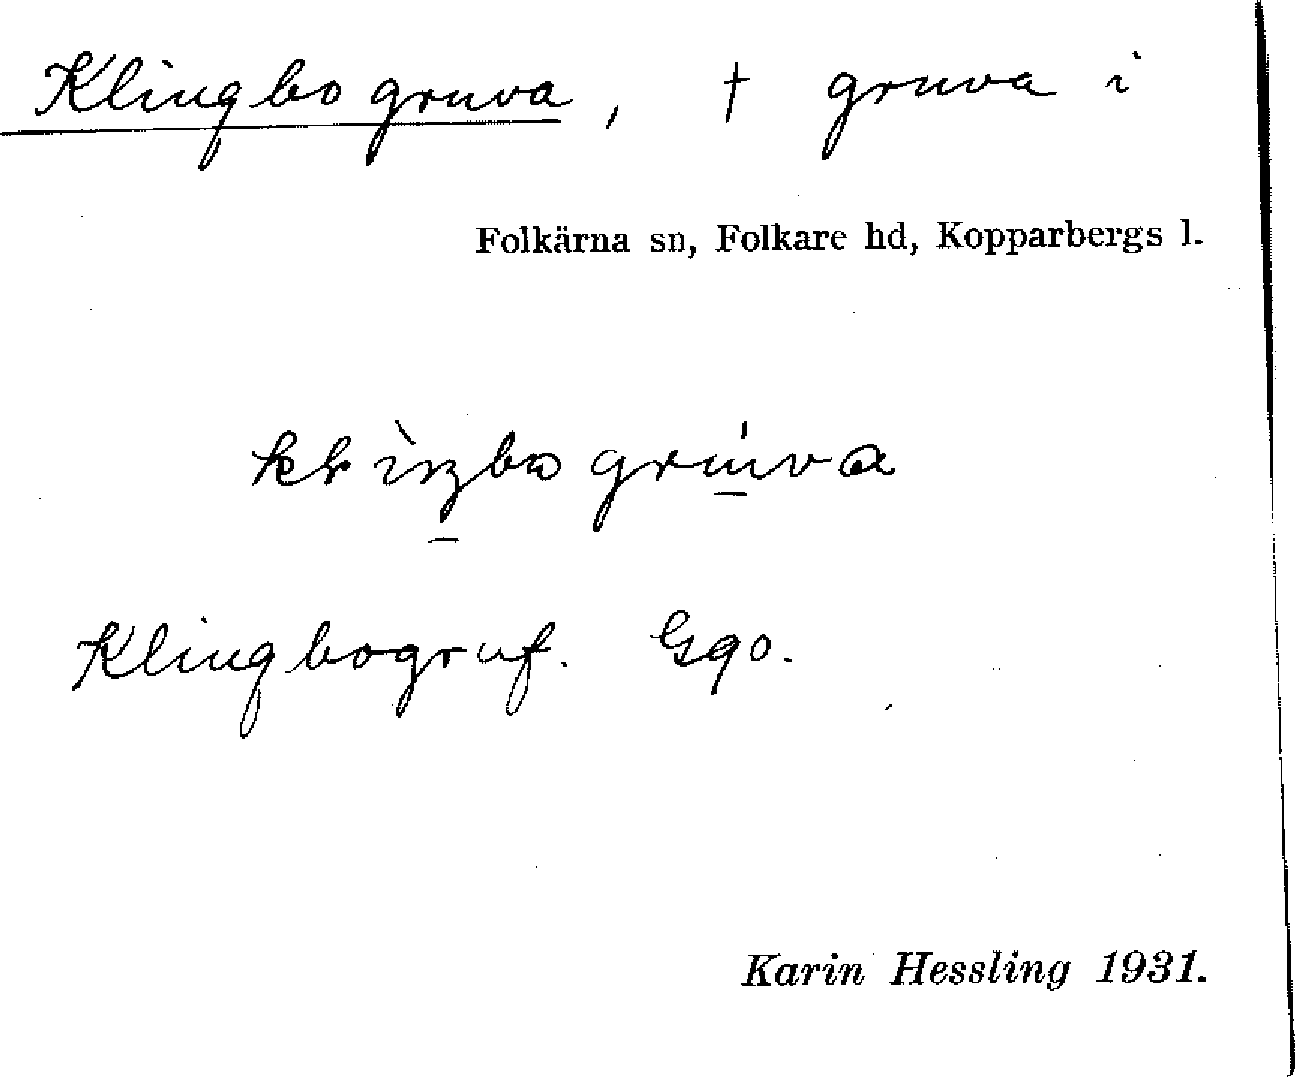 Klingbo gruva, † gruva i
Folkärna sn, Folkare hd, Kopparbergs l.
Klingbogruf. Gqo.
Karin Hessling 1931.